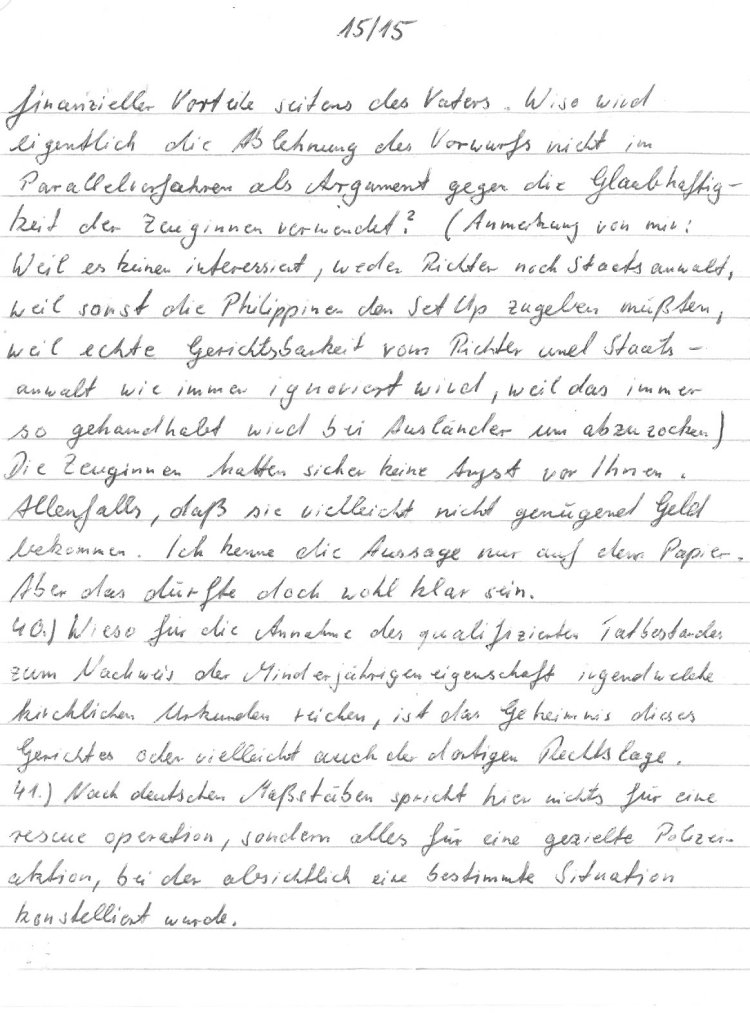 15/15
finanzieller Vorteile seitens des Vaters. Wiso wird
eigentlich die Ablehnung des Vorwurfs nicht im
Parallelverfahren als Argument gegen die Glaubhaftig-
keit der Zeuginnen verwendet? (Anmerkung von mir:
Weil es keinen interessiert, weder Richter noch Staatsanwalt,
weil sonst die Philippinen den Set Up zugeben müßten,
weil echte Gerichtsbarkeit vom Richter und Staats-
anwalt wie immer ignoriert wird, weil das immer
so gehandhabt wird bei Ausländer um abzuzocken)
Die Zeuginnen hatten sicher keine Angst vor Ihnen.
Allenfalls, daß sie vielleicht nicht genügend Geld
bekommen. Ich kenne die Aussage nur auf dem Papier.
Aber das dürfte doch wohl klar sein.
40.) Wieso für die Annahme des qualifizierten Tatbestandes
zum Nachweis der Minderjährigeneigenschaft irgendwelche
kirchlichen Urkunden reichen, ist das Geheimnis dieses
Gerichtes oder vielleicht auch der dortigen Rechtslage.
41.) Nach deutschen Maßstäben spricht hier nichts für eine
rescue operation, sondern alles für eine gezielte Polizei-
aktion, bei der absichtlich eine bestimmte Situation
konstelliert wurde.